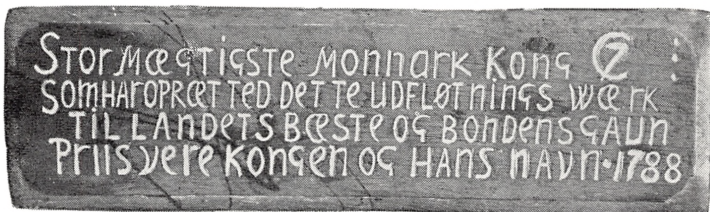 STORMÆGTIGSTE MONNARK KONG C7 :
SOMHAROPRÆTTED DETTE UDFLØTNINGS WÆRK
TIL LANDETS BÆSTE OG BONDENS GAUN
PRIIS VERE KONGEN OG HANS NAVN·1788